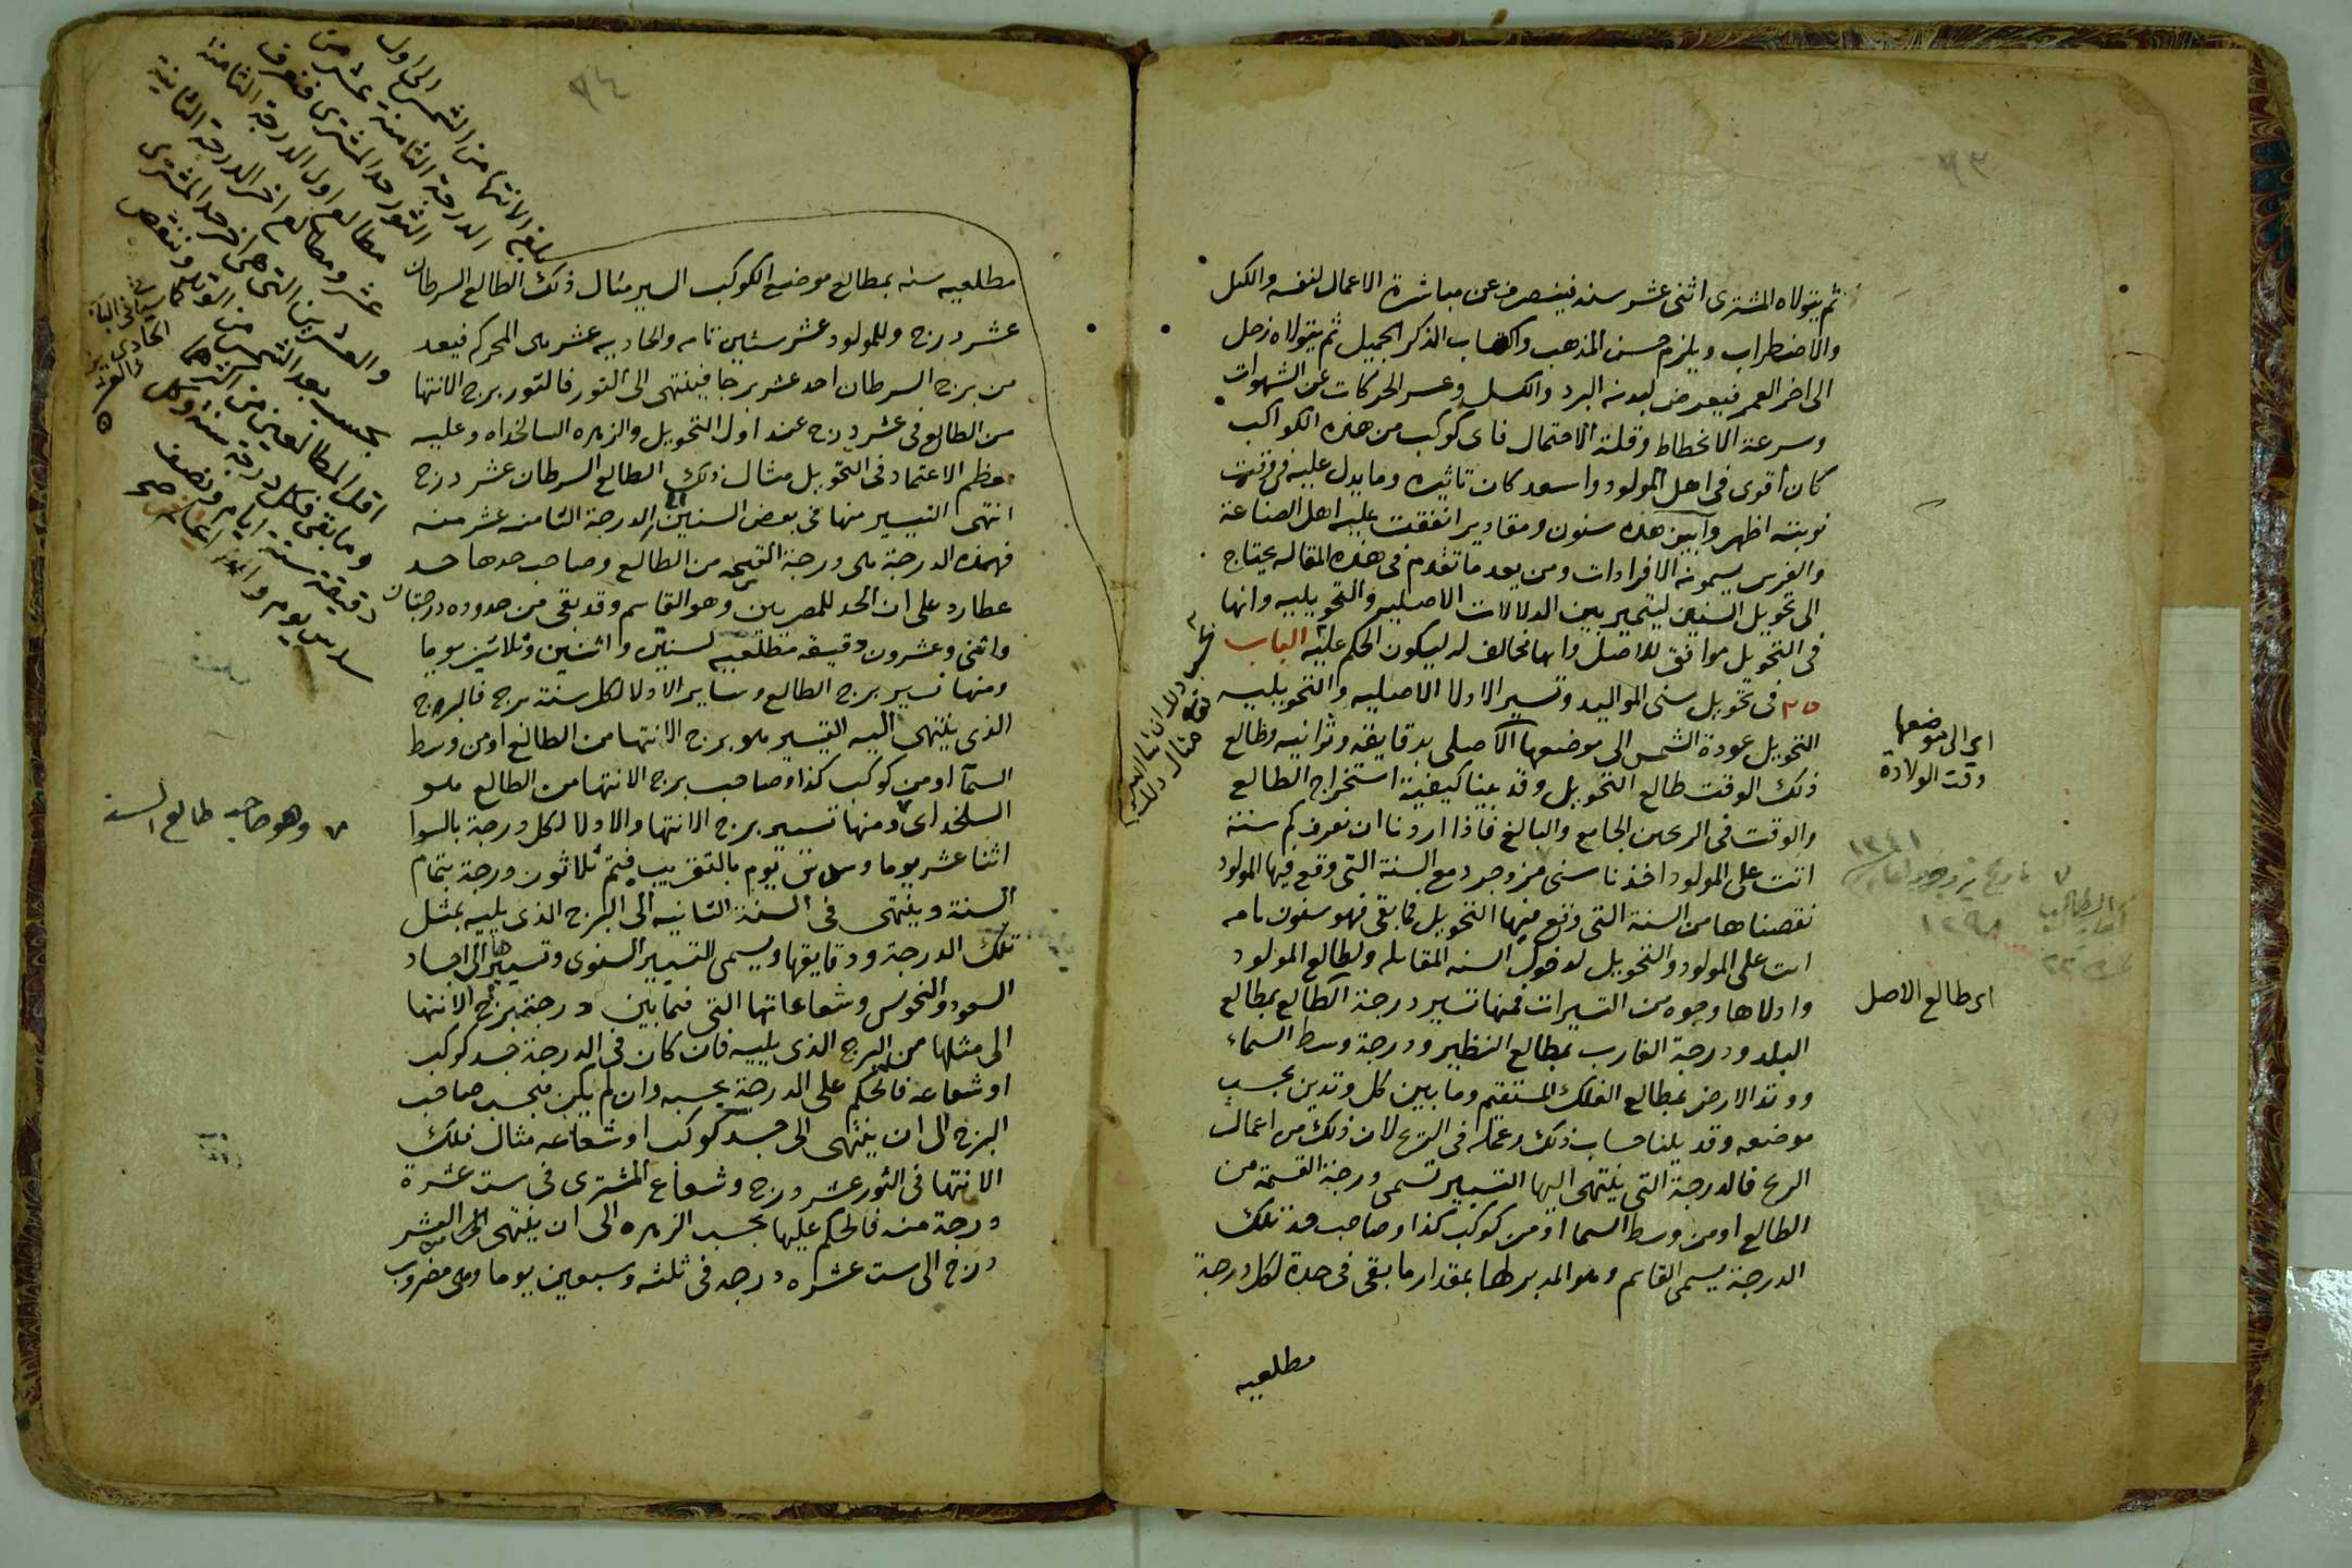 ٩٣
ثم يتولاه المشترى اثنى عشر سنه فينصرف عن مباشرة الاعمال لنفسه والكل
والاضطراب ويلزم حسن المذهب واكتساب الذكر الجميل ثم يتولاه زحل
الى اخر العمر فيعرض لبدنه البرد والكسل وعسر الحركات عن الشهوات
وسرعة الانحطاط وقلة الاحتمال فاى كوكب من هذه الكواكب
كان أقوى فى اهل المولود واسعد كان تاثيره وما يدل عليه فى وقت
نوبته اظهر وأبين هذه سنون ومقادير اتفقت عليه اهل الصناعة
والفرس يسمونه الافرادات ومن بعد ما تقدم فى هذه المقاله يحتاج
الى تحويل السنين ليتميز بين الدلالات الاصليه والتحويليه وانها
فى التحويل موافق للاصل وايها مخالف له ليكون الحكم عليه الباب
٢٥ فى تحويل سنى المواليد وتسير الادلا الاصليه والتحويليه
التحويل عودة الشمس الى موضعها الاصلى بدقايقه وثوانيه وطالع
ذلك الوقت طالع التحويل وقد بينا كيفية استخراج الطالع
والوقت فى الزيجين الجامع والبالغ فاذا اردنا ان نعرف كم سنة
اتت على المولود اخذنا سنى يزدجرد مع السنة التى وقع فيها المولود
نقصناها من السنة التى وقع فيها التحويل فما بقى فهو سنون تامه
اتت على المولود والتحويل لدخول السنه المقابله ولطالع المولود
وادلاها وجوه من التسيرات فمنها تسير درجة الطالع بمطالع
البلد ودرجة الغارب بمطالع النظير ودرجة وسط السماء
ووتد الارض بمطالع الفلك المستقيم وما بين كل وتدين بحسب
موضعه وقد بلنا حساب ذلك وعمله فى الزيج لان ذلك من اعمال
الزيج فالدرجة التى ينتهى اليها التسيير تسمى درجة القسمة من
الطالع او من وسط السما او من كوكب كذا وصاحب حد تلك
الدرجة يسمى القاسم وهو المدبر لها بمقدار ما بقى فى حده لكل درجة
مطلعيه
اى الى موضعها
وقت الولادة
١٣٤١
١٢٩٨
اى طالع الاصل
مثال ذلك
٩٤
مطلعيه سنه بمطالع موضع الكوكب السير مثال ذلك الطالع السرطان
عشر درج وللمولود عشر سنين تامه والحاديه عشر هى المحركه فيعد
من برج السرطان احد عشر برجا فينتهى الى الثور فالثور برج الانتها
من الطالع فى عشر درج عند اول التحويل والزهره السالخداه وعليه
معظم الاعتماد فى التحويل مثال ذلك الطالع السرطان عشر درج
انتهى التيسير منها فى بعض السنين الى الدرجة الثامنه عشر منه
فهذه الدرجة هى درجة القسمة من الطالع وصاحب حدها حد
عطارد على ان الحد للمصريين وهو القاسم وقد بقى من حدوده درجتان
واثنى وعشرون دقيقه مطلعيه لسنتين واثنين وثلاثين يوما
ومنها تسير برج الطالع وساير الادلا لكل سنة برج فالبرج
الذى ينتهى اليه التيسير هو برج الانتها من الطالع او من وسط
السمآ او من كوكب كذا وصاحب برج الانتها من الطالع هو
السلخداى ومنها تسير برج الانتها والادلا لكل درجة بالسوا
اثنا عشر يوما وسدس يوم بالتقريب فيتم ثلاثون درجة بتمام
السنة وينتهى فى السنة الثانيه الى البرج الذى يليه بمثل
تلك الدرجة ودقايقها ويسمى التسيير السنوى وتسييرها الى اجساد
السعود والنحوس وشعاعاتها التى فيما بين درجة برج الانتها
الى مثلها من البرج الذى يليه فان كان فى الدرجة جسد كوكب
او شعاعه فالحكم على الدرجة بحسبه وان لم يكن فبحسب صاحب
البرج الى ان ينتهى الى جسد كوكب او شعاعه مثال ذلك
الانتها فى الثور عشر درج وشعاع المشترى فى ست عشرة
درجة منه فالحكم عليها بحسب الزهره الى ان ينتهى من العشر
درج الى ست عشره درجه فى ثلثه وسبعين يوما وهى مضروب
بلغ الانتها من الشمس الى اول
الدرجة الثامنة عشر من
الثور حد المشترى فنعرف
مطالع اول الدرجة الثامنة
عشر ومطالع اخر الدرجة الثانية
والعشرين التى هى اخر حد المشترى
بحسب بعد الشمس من الوتد وننقص
اقل المطالعين من اكثرهما
وما بقى فكل درجة سنة وكل
دقيقة ستة ايام ونصف
سدس يوم
وهو صاحب طالع السنه